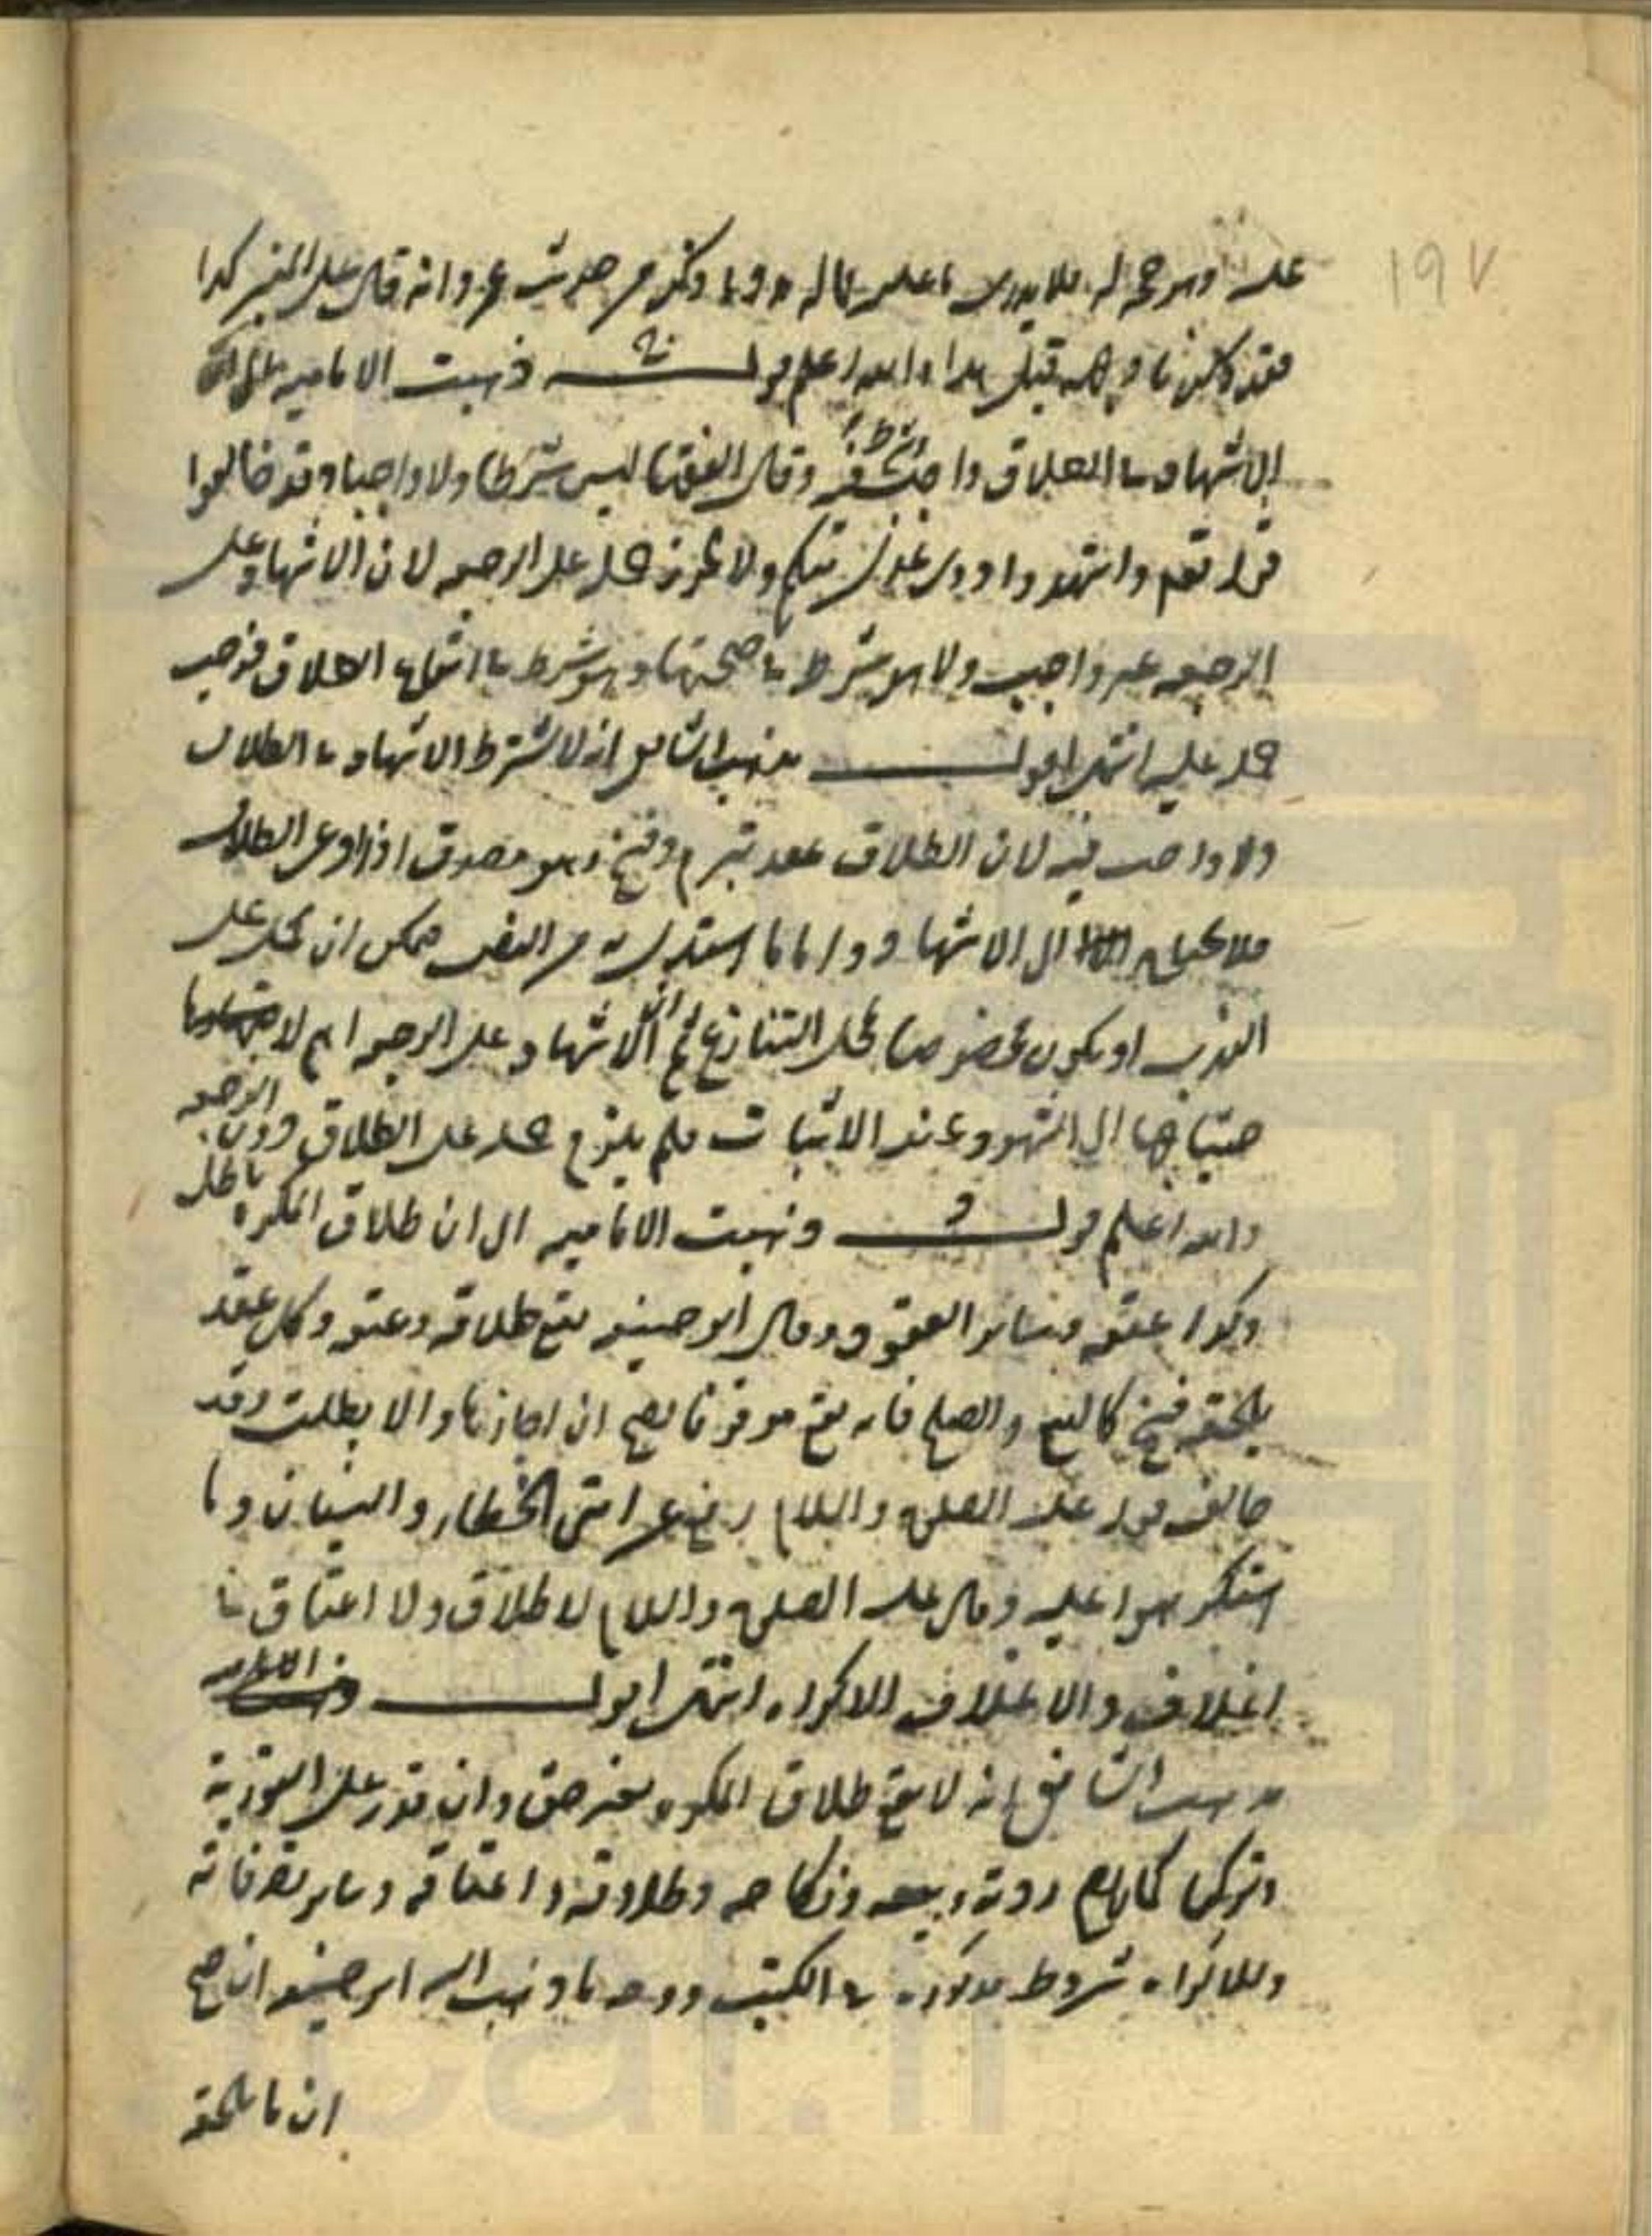 ١٩٧
عليه وهو حجة له فلا يدري ما علم ما له وما ذكر من حديث عمر وانه قال على المنبر كذا
فقد ذكرنا وجهه قبل هذا والله اعلم قولـــه ذهبت الامامية الى ان
الاشهاد في الطلاق واجب شرط فيه وقال الفقها ليس شرطا ولا واجبا وقد خالفوا
قوله تعم واشهدوا ذوي عدل منكم ولا يجوز حمله على الرجعه لان الاشهاد على
الرجعه غير واجب ولا هو شرط في صحتها وهو شرط في ايقاع الطلاق فوجب
حمله عليه انتهى اقولـــ مذهب الشافعي انه لا يشترط الاشهاد في الطلاق
ولا واجب فيه لان الطلاق عقد يبرم وفسخ وهو مصدق اذا ادعى الطلاق
فلا يحتاج الى الاشهاد واما ما استدل به من النص فيمكن ان يحمل على
الندب او يكون مخصوصا بمحل التنازع ثم ان الاشهاد على الرجعه اهم لا
حتياجها الى الشهود عند الاثبات فلم يلزم حمله على الطلاق دون الرجعه
والله اعلم قولـــه و ذهبت الامامية الى ان طلاق المكره باطل
وكذا عتقه وسائر العقود وقال ابو حنيفه يقع طلاقه وعتقه وكل عقد
يلحقه فسخ كالبيع والصلح فانه يقع موقوفا يصح ان اجازها والا بطلت وقد
خالف قوله عليه الصلوة والسلام رفع عن امتي الخطاء والنسيان وما
استكرهوا عليه وقال عليه الصلوة والسلام لا طلاق ولا اعتاق في
اغلاق والاغلاق الاكراه انتهى اقولـــ
مذهب الشافعي انه لا يقع طلاق المكره بغير حق وان قدر على التورية
وتركها كما لا يصح ردته وبيعه ونكاحه وطلاقه واعتاقه وسائر تصرفاته
وللاكراه شروط مذكورة في الكتب ووجه ما ذهب اليه ابو حنيفه ان صح
ان ما يلحقه